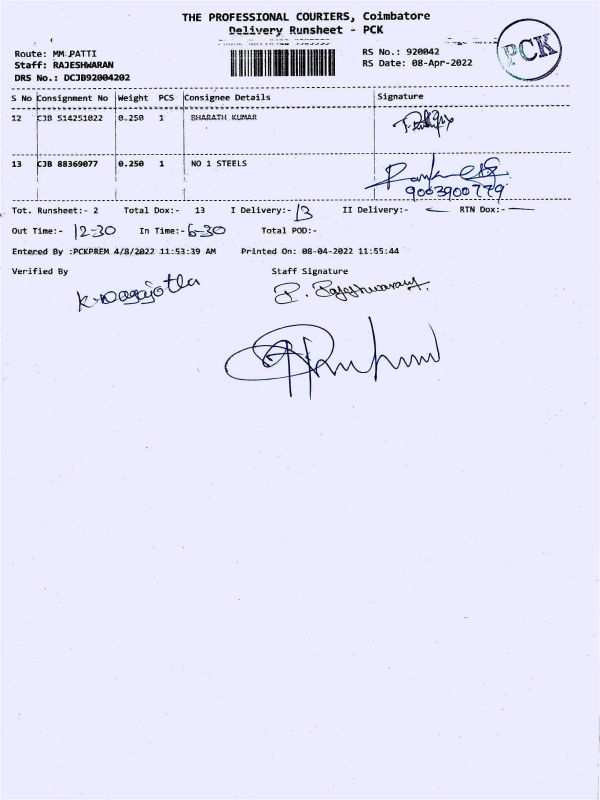 THE PROFESSIONAL COURIERS, Coimbatore
Delivery Runsheet - PCK
PCK
Route: MM PATTI
RS No.: 920042
Staff: RAJESHWARAN
RS Date: 08-Apr-2022
DRS No.: DCJB92004202
S No Consignment No Weight PCS Consignee Details Signature
12 CJB 514251022 0.250 1 BHARATH KUMAR
13 CJB 88369077 0.250 1 NO 1 STEELS
9003900779
Tot. Runsheet:- 2 Total Dox:- 13 I Delivery:- 13 II Delivery:- — RTN Dox:- —
Out Time:- 12-30 In Time:- 6-30 Total POD:-
Entered By :PCKPREM 4/8/2022 11:53:39 AM Printed On: 08-04-2022 11:55:44
Verified By Staff Signature
P. Rajeshwaran